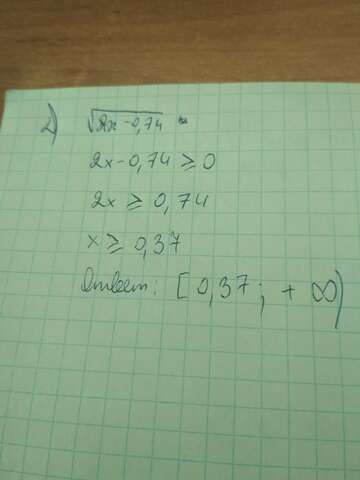 2) √2x-0,74
2x-0,74 ≥ 0
2x ≥ 0,74
x ≥ 0,37
Ответ: [0,37; +∞)